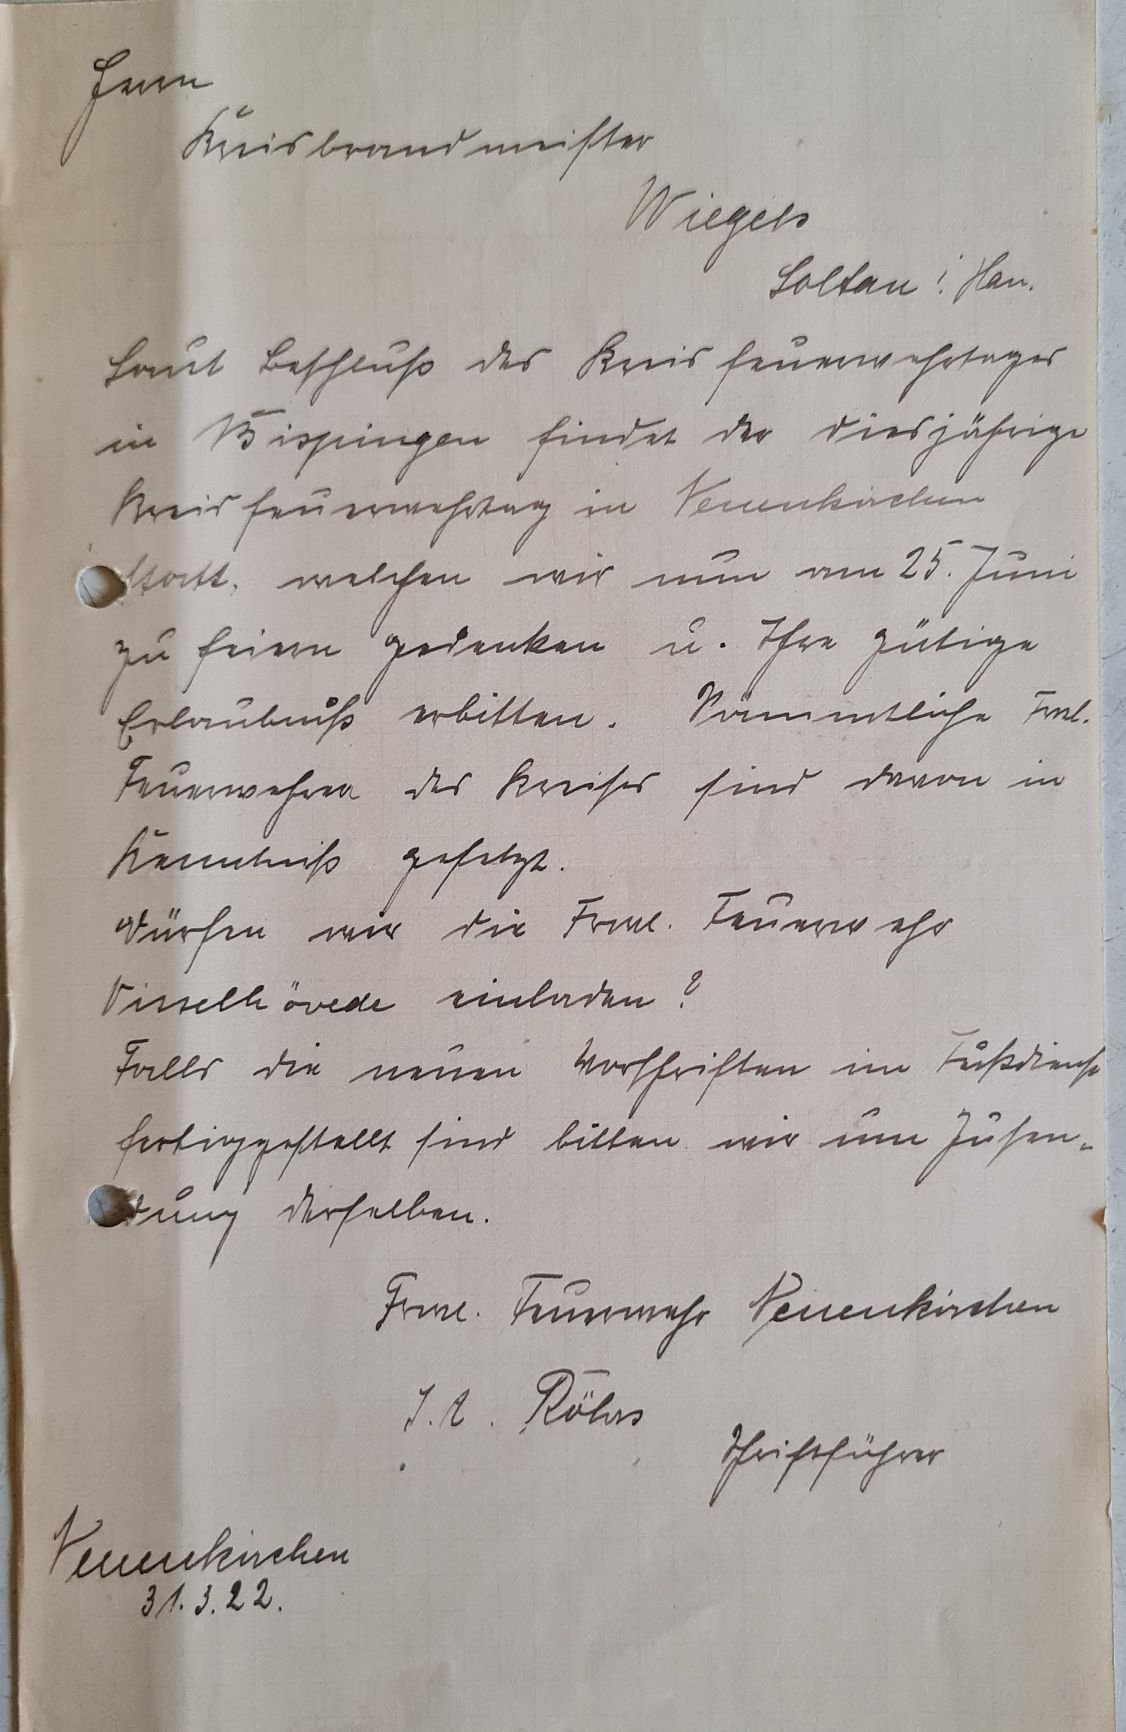 Herrn
Kreisbrandmeister
Wiegels
Soltau i. Han.
Laut Beschluß des Kreisfeuerwehrtages
in Bispingen findet der diesjährige
Kreisfeuerwehrtag in Neuenkirchen
statt, welchen wir nun am 25. Juni
zu feiern gedenken u. Ihre gütige
Erlaubniß erbitten. Sämmtliche Frwl.
Feuerwehren des Kreises sind davon in
Kenntniß gesetzt.
Dürfen wir die Frwl. Feuerwehr
Visselhövede einladen?
Falls die neuen Vorschriften im Fußdienst
fertiggestellt sind bitten wir um Zusen-
dung derselben.
Frwl. Feuerwehr Neuenkirchen
I. A. Röhrs
Schriftführer
Neuenkirchen
31.3.22.